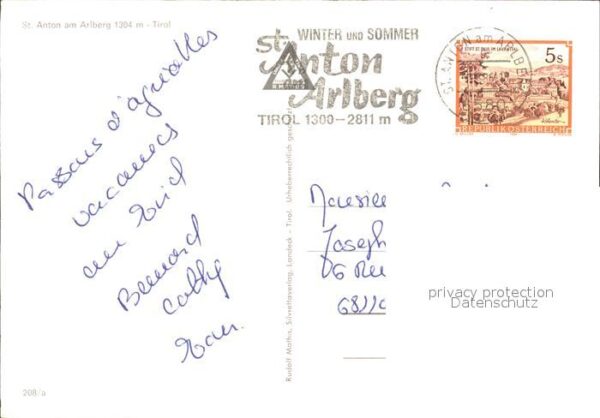 St. Anton am Arlberg 1304 m - Tirol
WINTER UND SOMMER
St. Anton
am
Arlberg
TIROL 1300-2811 m
ST. ANTON am ARLBERG
STIFT ST. PAUL IM LAVANTTAL
5s
REPUBLIK ÖSTERREICH
Passons d'agréables
vacances
au Tirol
Bernard
Cathy
Rudolf Mathis, Silvrettaverlag, Landeck - Tirol. Urheberrechtlich geschützt
Joseph
68110
privacy protection
Datenschutz
208/a